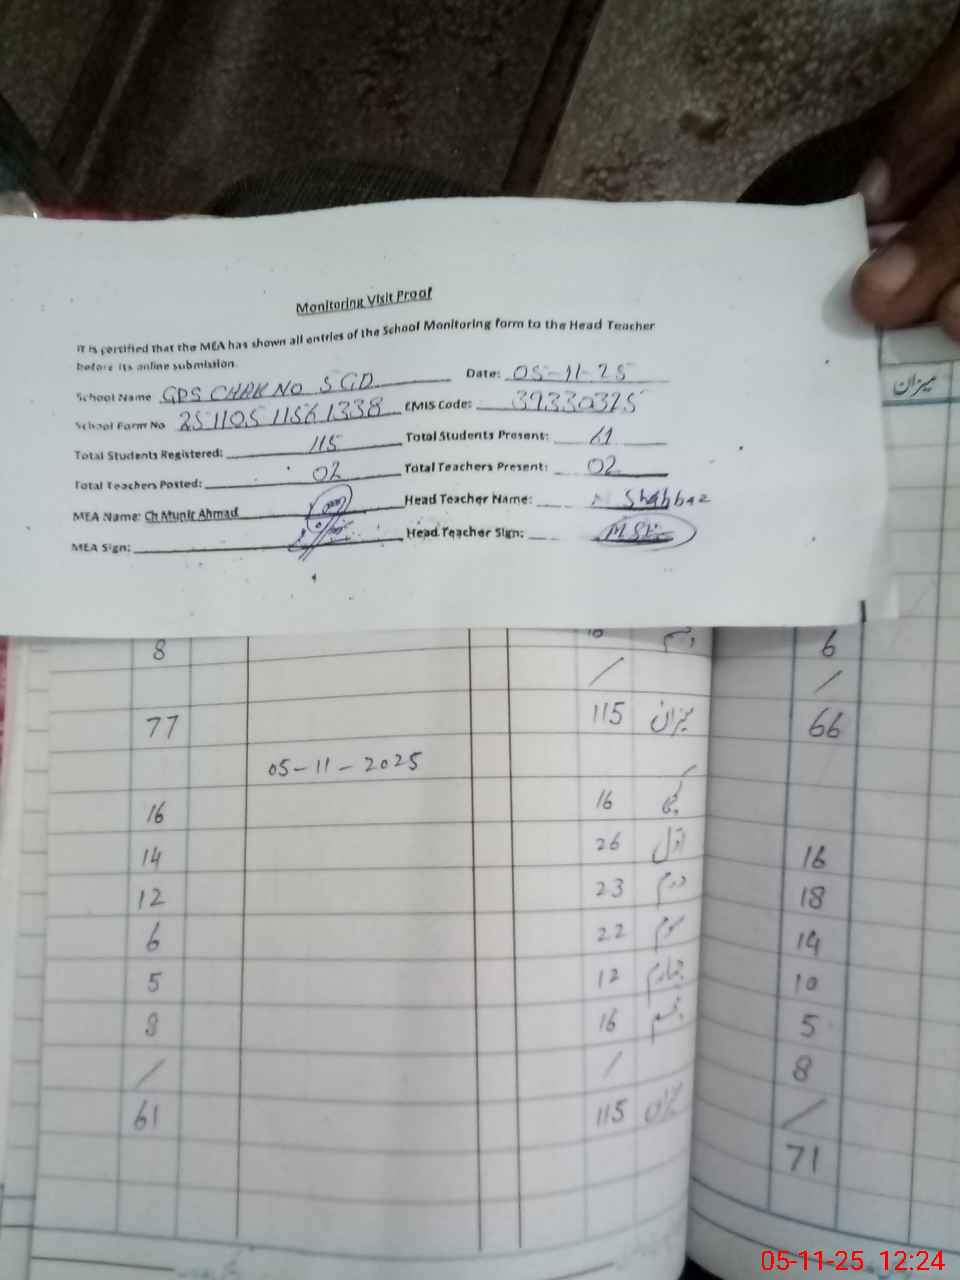 Monitoring Visit Proof
It is certified that the MEA has shown all entries of the School Monitoring form to the Head Teacher
before its online submission.
School Name GPS CHAK NO 5 GD Date: 05-11-25
School Form No 2511051156 1338 EMIS Code: 39330325
Total Students Registered: 115 Total Students Present: 61
Total Teachers Posted: 02 Total Teachers Present: 02
MEA Name: Ch Munir Ahmad Head Teacher Name: Shahbaz
MEA Sign: Head Teacher Sign:
میزان
8 6
/ /
77 115 میزان 66
05-11-2025
16 16 کچی
14 26 اول 16
12 23 دوم 18
6 22 سوم 14
5 12 چہارم 10
8 16 پنجم 5
/ / 8
61 115 میزان /
71
05-11-25 12:24